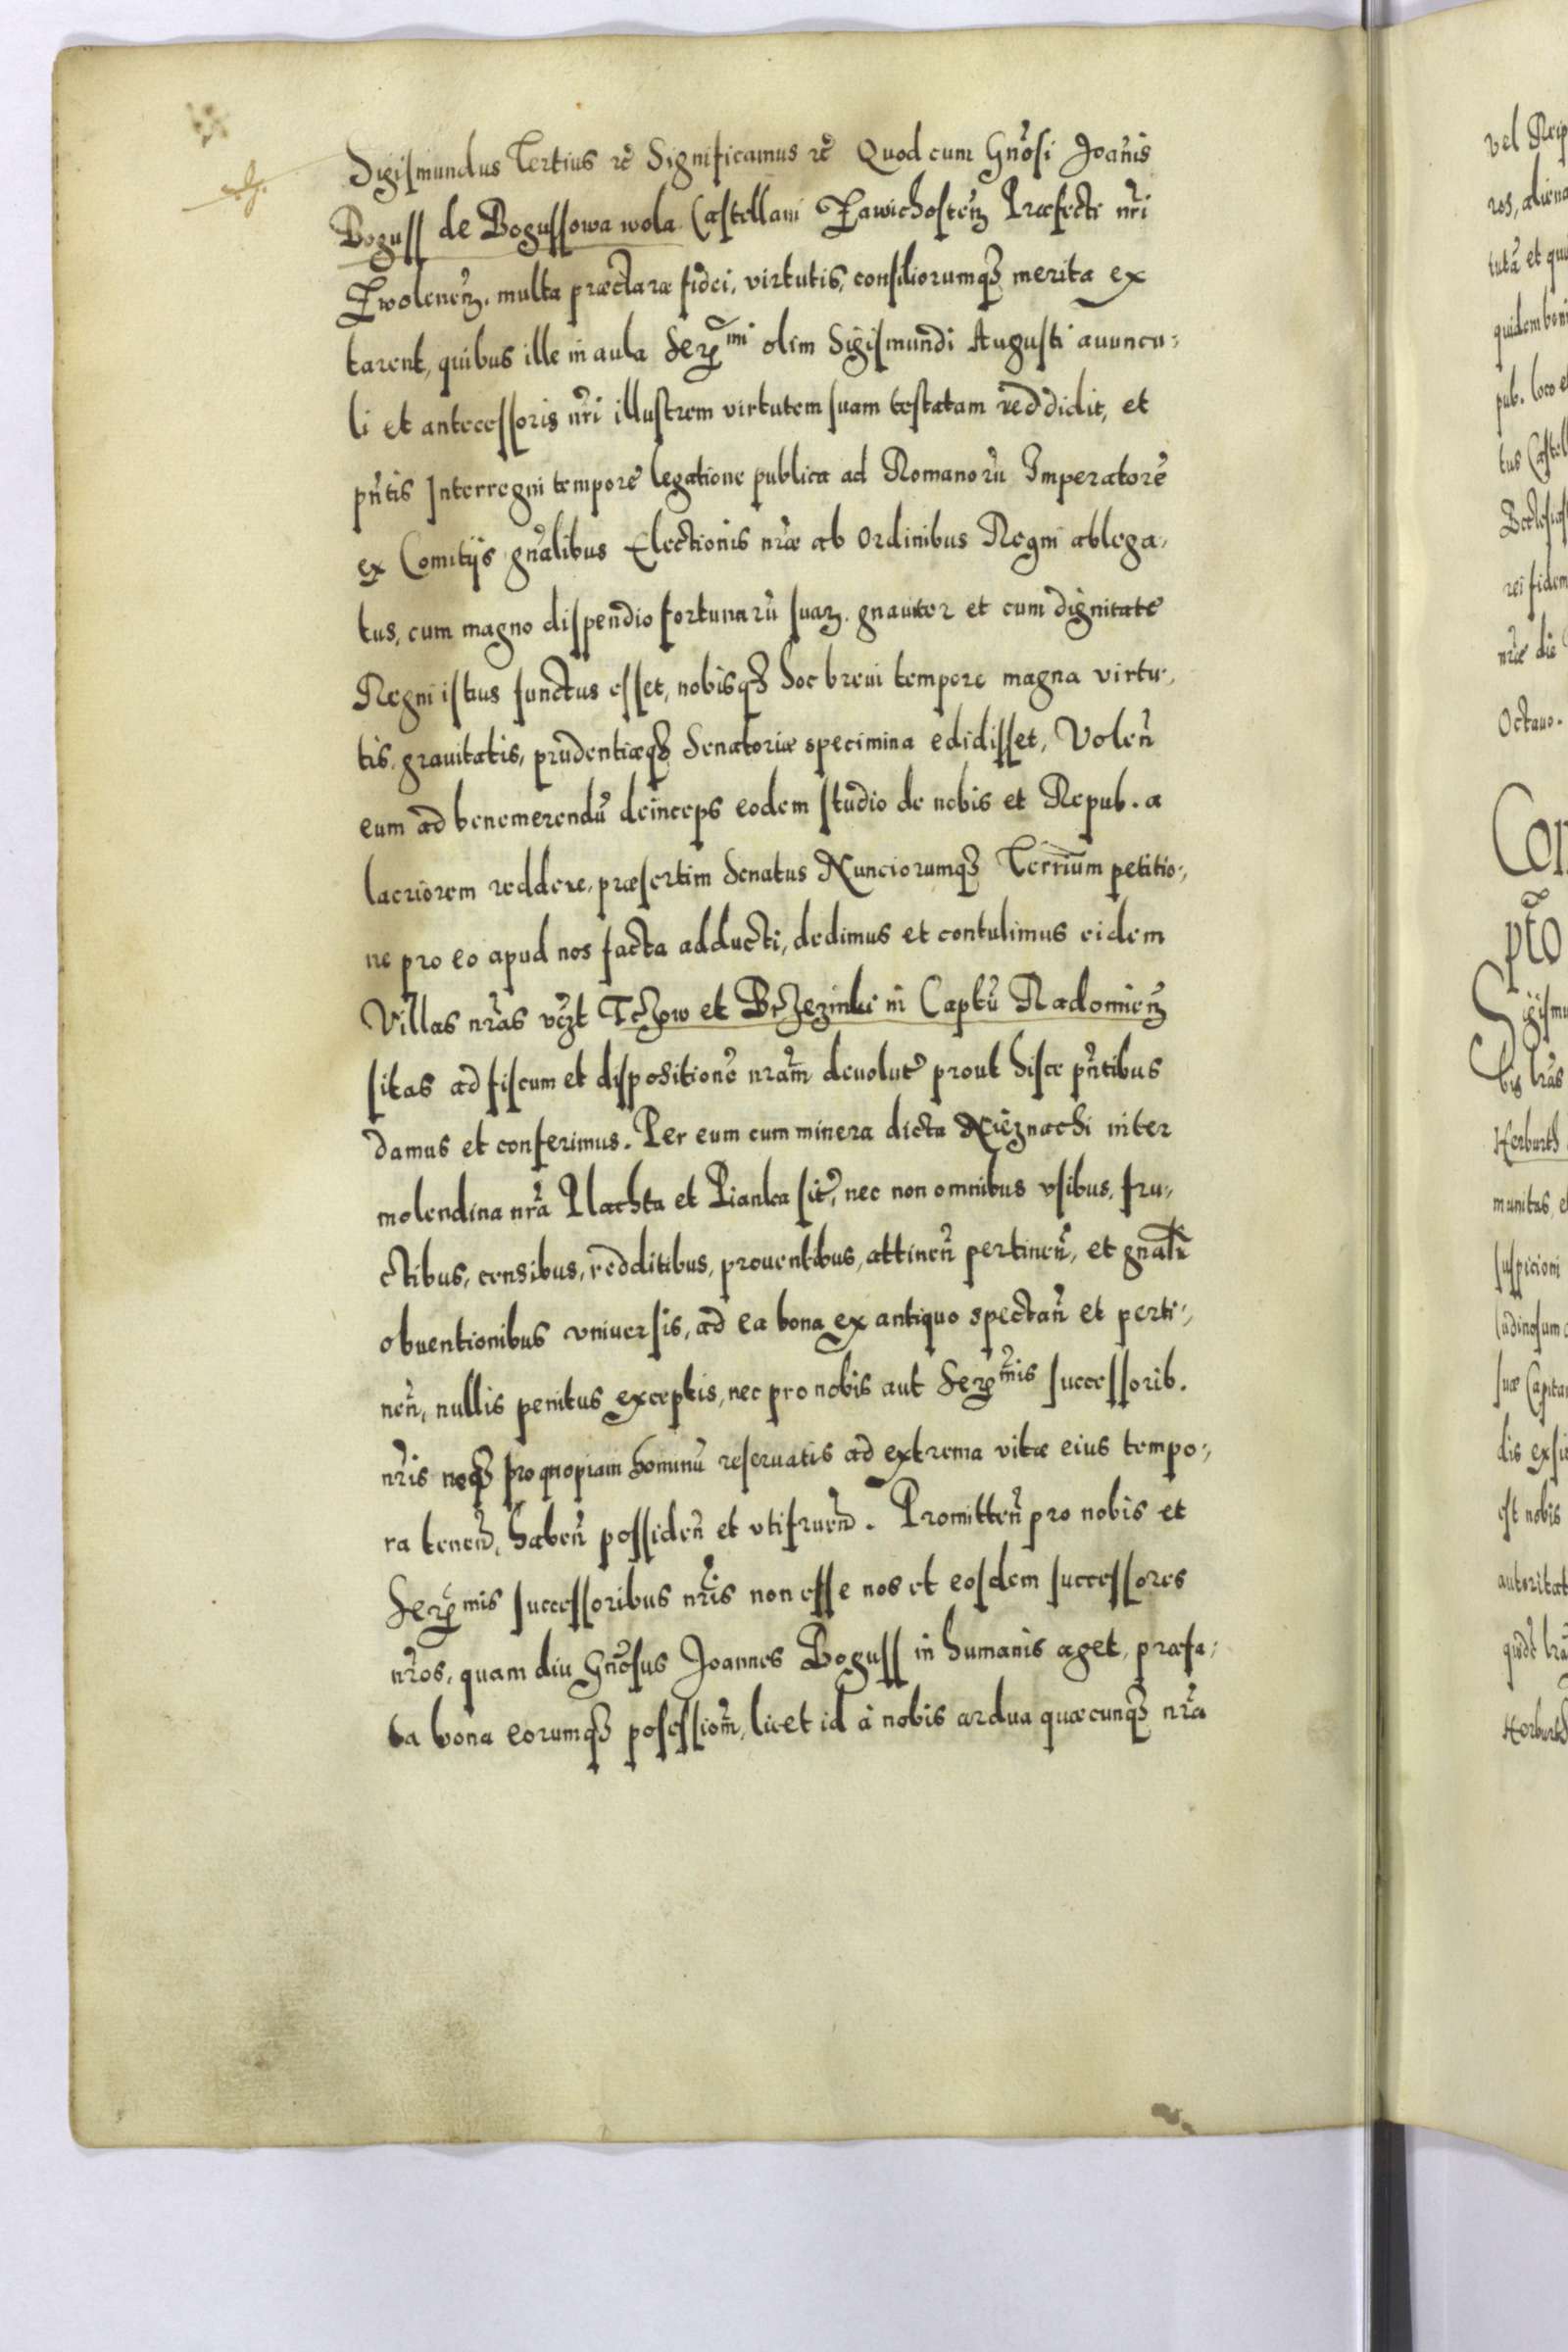 Sigismundus Tertius rc̃ Significamus rc̃ Quod cum Gnõsi Joañis
Boguss de Bogussowa wola Castellani Zawichosteñ Præfecti nr̃i
Zwoleneñ. multa præclaræ fidei, virtutis, consiliorumq₃ merita ex
tarent, quibus ille in aula Serm̃i olim Sigismundi Augusti auuncu⸗
li et antecessoris nr̃i illustrem virtutem suam testatam reddidit, et
pñtis Interregni tempore legatione publica ad Romanorũ Imperatorẽ
ex Comitijs gnãlibus Electionis nr̃æ ab Ordinibus Regni ablega⸗
tus, cum magno dispendio fortunarũ suaꝝ. gnauiter et cum dignitate
Regni istius functus esset, nobisq₃ hoc breui tempore magna virtu⸗
tis, grauitatis, prudentiæq₃ Senatoriæ specimina edidisset, Voleñ
eum ad benemerendũ deinceps eodem studio de nobis et Repub. a
lacriorem reddere, præsertim Senatus Nunciorumq₃ Terrium petitio⸗
ne pro eo apud nos facta adducti, dedimus et contulimus eidem
Villas nr̃as vcz̃t Tczow et Brzezinki in Captũ Radomieñ
sitas ad fiscum et dispositionẽ nrãm deuolut̃ prout hisce pñtibus
damus et conferimus. Per eum cum minera dicta Nieznachi inter
molendina nr̃a Plachta et Pianka sit̃, nec non omnibus vsibus, fru⸗
ctibus, censibus, redditibus, prouentibus, attineñ pertineñ, et gnãlr̃
obuentionibus vniuersis, ad ea bona ex antiquo spectañ et perti⸗
neñ, nullis penitus exceptis, nec pro nobis aut Serm̃is successorib.
nr̃is neq₃ pro quopiam hominũ reseruatis ad extrema vitæ eius tempo⸗
ra teneñd, habeñ possideñ et vtifrueñd. Promitteñ pro nobis et
Serm̃is successoribus nr̃is non esse nos et eosdem successores
nr̃os, quam diu Gnõsus Joannes Boguss in humanis aget, præfa⸗
ta bona eorumq₃ posessiom̃, licet id à nobis ardua quæcunq₃ nr̃a